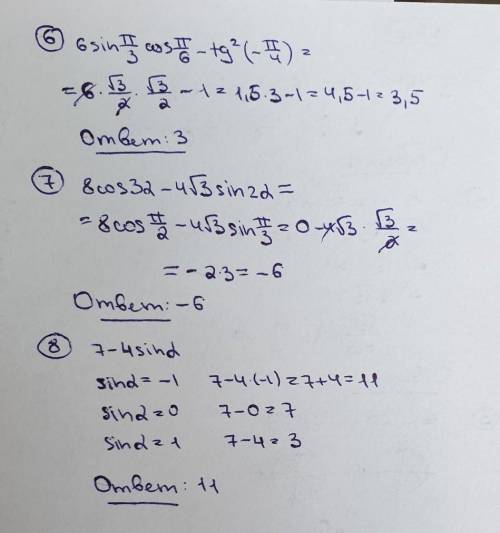 ⑥ 6sin π/3 cos π/6 - tg²(-π/4) =
= 6 · √3/2 · √3/2 - 1 = 1,5·3-1 = 4,5-1 = 3,5
Ответ: 3
⑦ 8cos3α - 4√3 sin2α =
= 8cos π/2 - 4√3 sin π/3 = 0 - 4√3 · √3/2 =
= -2·3 = -6
Ответ: -6
⑧ 7-4sinα
sinα = -1 7-4·(-1) = 7+4 = 11
sinα = 0 7-0 = 7
sinα = 1 7-4 = 3
Ответ: 11